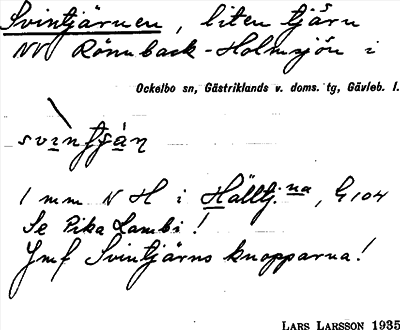 Svintjärnen, liten tjärn
NV Rönnback-Holmsjön i
Ockelbo sn, Gästriklands v. doms. tg, Gävleb. l.
svintjän
1 mm N H i Hälltj.na, G 104
Se Pika Lambi!
Jmf Svintjärns knopparna!
LARS LARSSON 1935